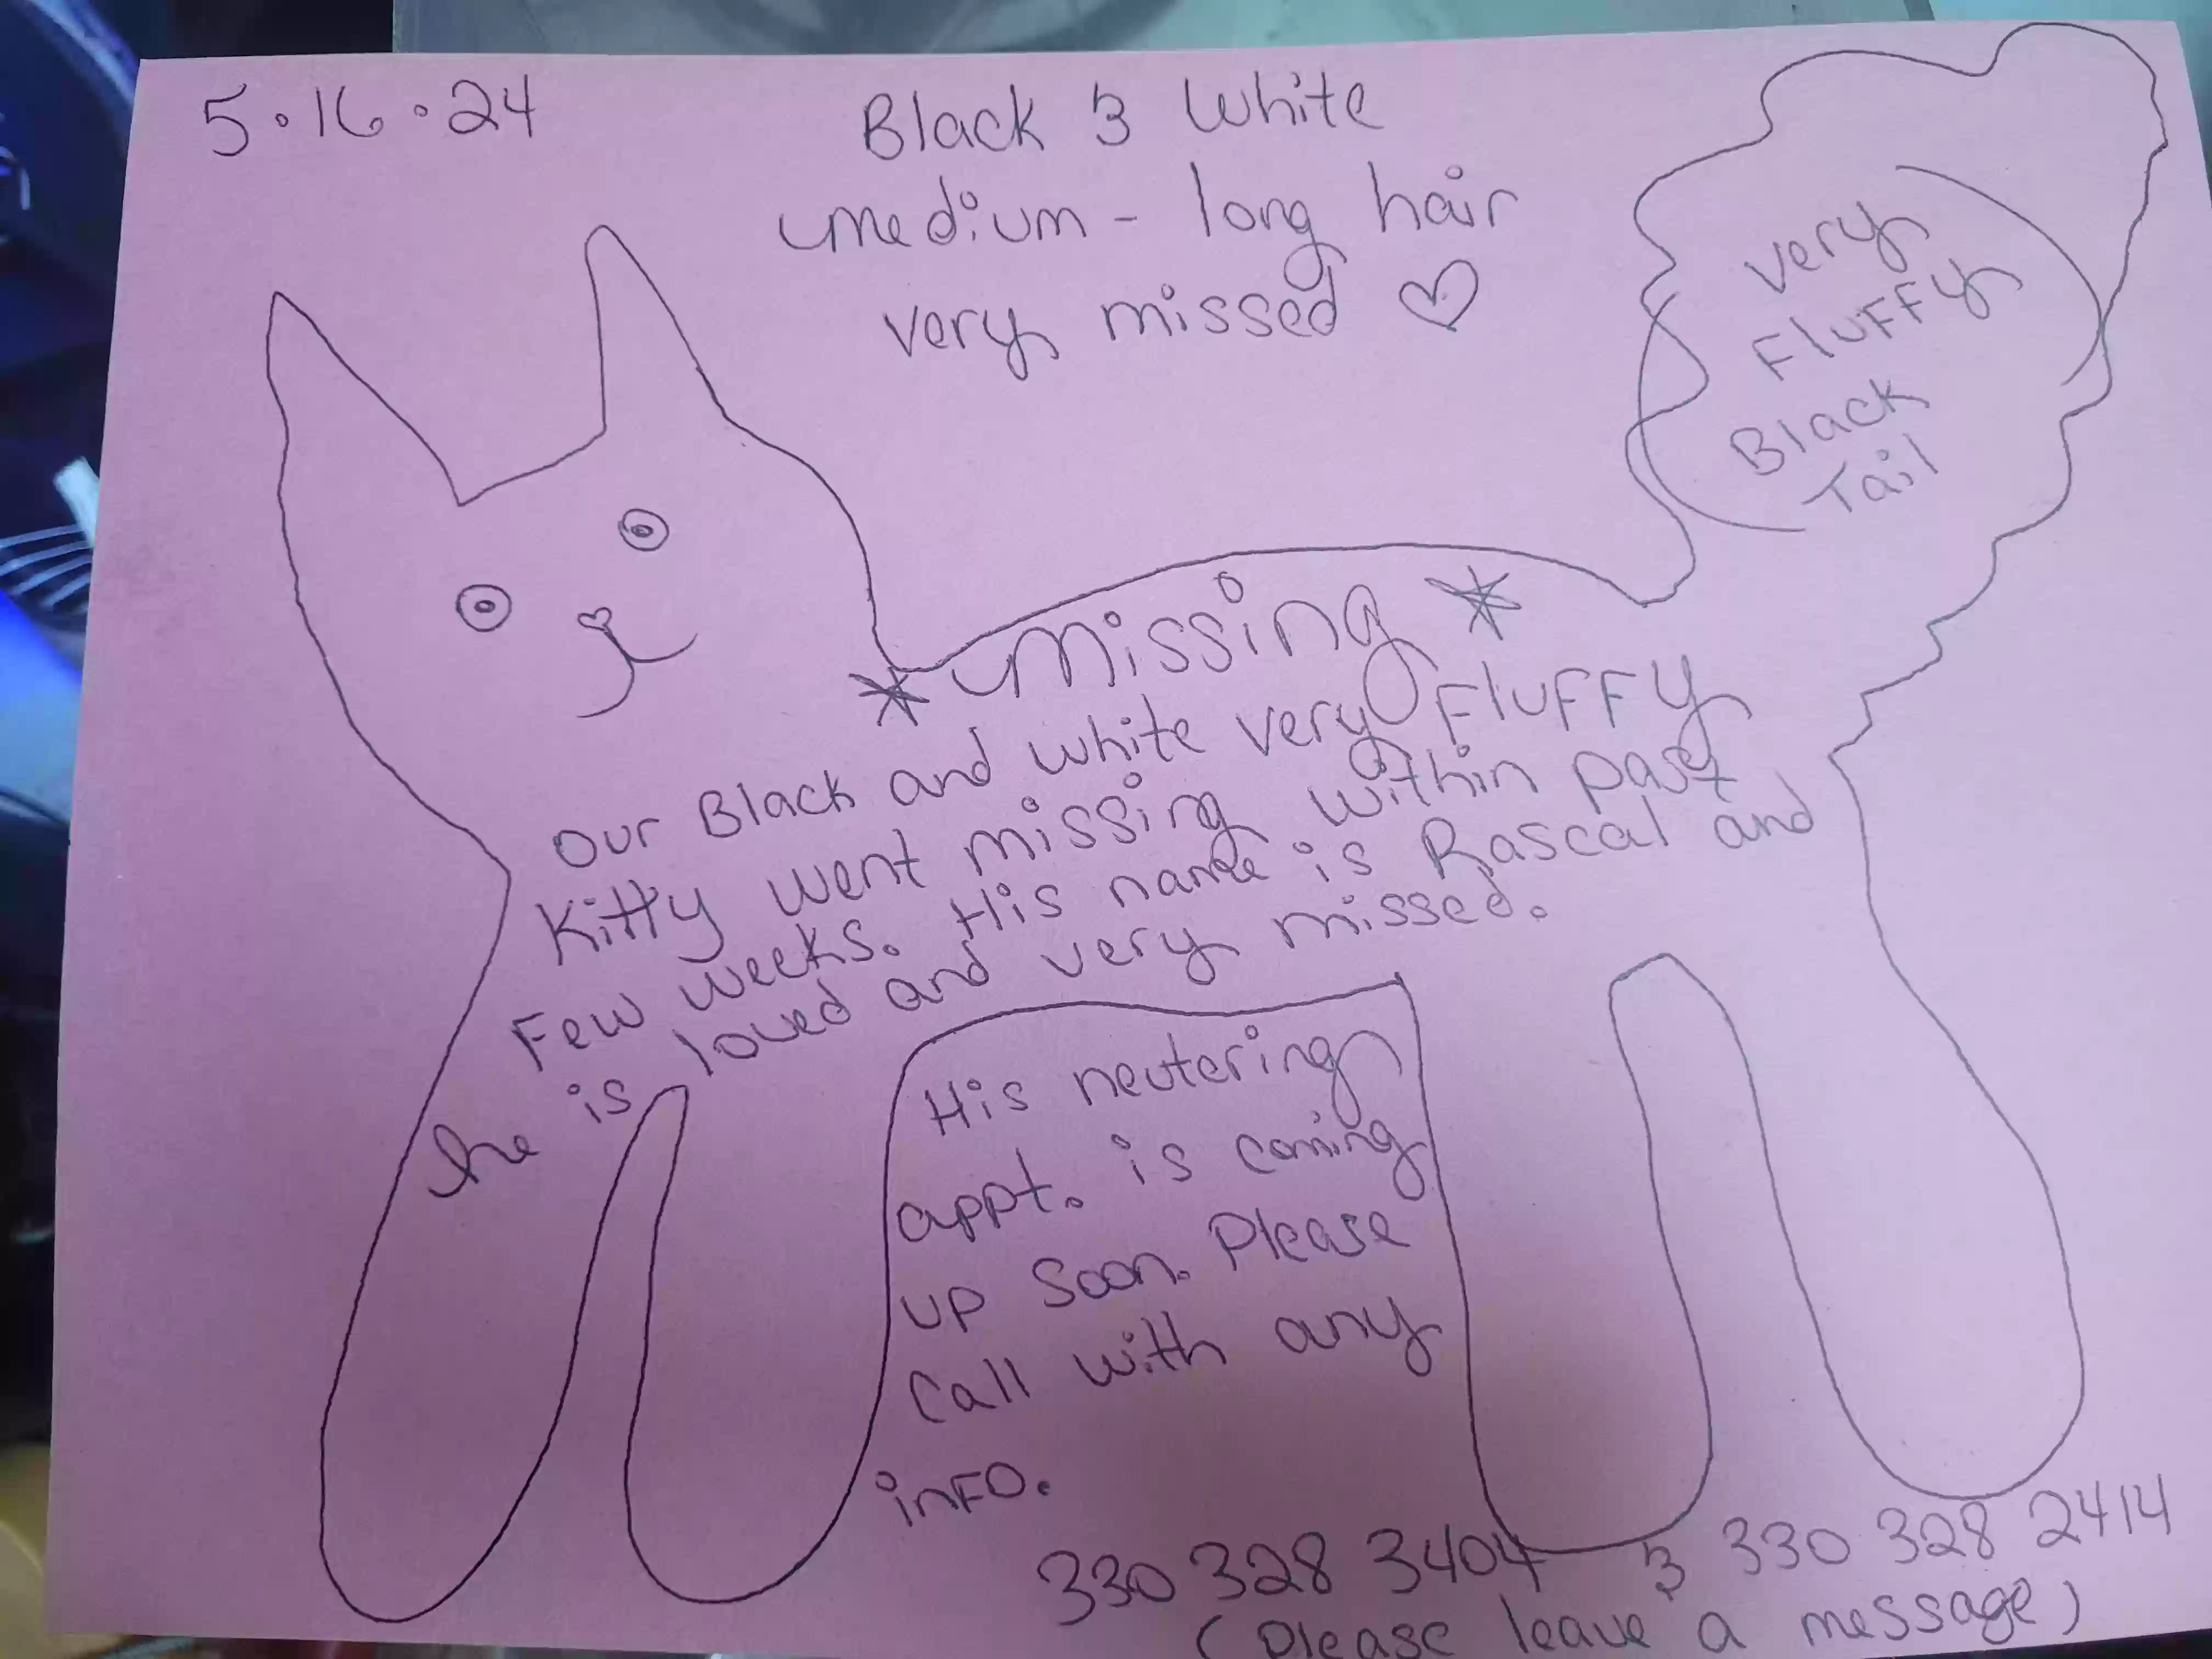 5.16.24
Black & White
medium - long hair
very missed ♡
very
Fluffy
Black
Tail
* missing *
Our Black and white very Fluffy
Kitty went missing within past
Few weeks. His name is Rascal and
he is loved and very missed.
His neutering
appt. is coming
up soon. Please
call with any
info.
330 328 3404 & 330 328 2414
(Please leave a message)